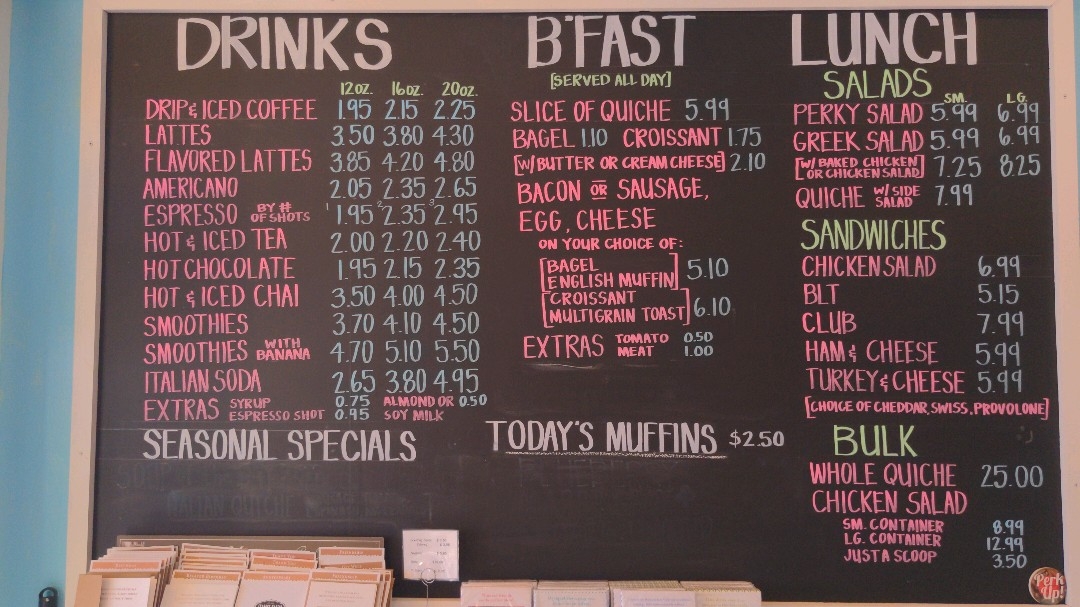 DRINKS
12oz. 16oz. 20oz.
DRIP & ICED COFFEE 1.95 2.15 2.25
LATTES 3.50 3.80 4.30
FLAVORED LATTES 3.85 4.20 4.80
AMERICANO 2.05 2.35 2.65
ESPRESSO BY # OF SHOTS 1 1.95 2 2.35 3 2.95
HOT & ICED TEA 2.00 2.20 2.40
HOT CHOCOLATE 1.95 2.15 2.35
HOT & ICED CHAI 3.50 4.00 4.50
SMOOTHIES 3.70 4.10 4.50
SMOOTHIES WITH BANANA 4.70 5.10 5.50
ITALIAN SODA 2.65 3.80 4.95
EXTRAS SYRUP 0.75 ALMOND OR 0.50
ESPRESSO SHOT 0.95 SOY MILK
SEASONAL SPECIALS
B'FAST
[SERVED ALL DAY]
SLICE OF QUICHE 5.99
BAGEL 1.10 CROISSANT 1.75
[W/ BUTTER OR CREAM CHEESE] 2.10
BACON OR SAUSAGE,
EGG, CHEESE
ON YOUR CHOICE OF:
[BAGEL
ENGLISH MUFFIN] 5.10
[CROISSANT
MULTIGRAIN TOAST] 6.10
EXTRAS TOMATO 0.50
MEAT 1.00
TODAY'S MUFFINS $2.50
LUNCH
SALADS
SM. LG.
PERKY SALAD 5.99 6.99
GREEK SALAD 5.99 6.99
[W/ BAKED CHICKEN]
[OR CHICKEN SALAD] 7.25 8.25
QUICHE W/ SIDE SALAD 7.99
SANDWICHES
CHICKEN SALAD 6.99
BLT 5.15
CLUB 7.99
HAM & CHEESE 5.99
TURKEY & CHEESE 5.99
[CHOICE OF CHEDDAR, SWISS, PROVOLONE]
BULK
WHOLE QUICHE 25.00
CHICKEN SALAD
SM. CONTAINER 8.99
LG. CONTAINER 12.99
JUST A SCOOP 3.50
Perk
Up!